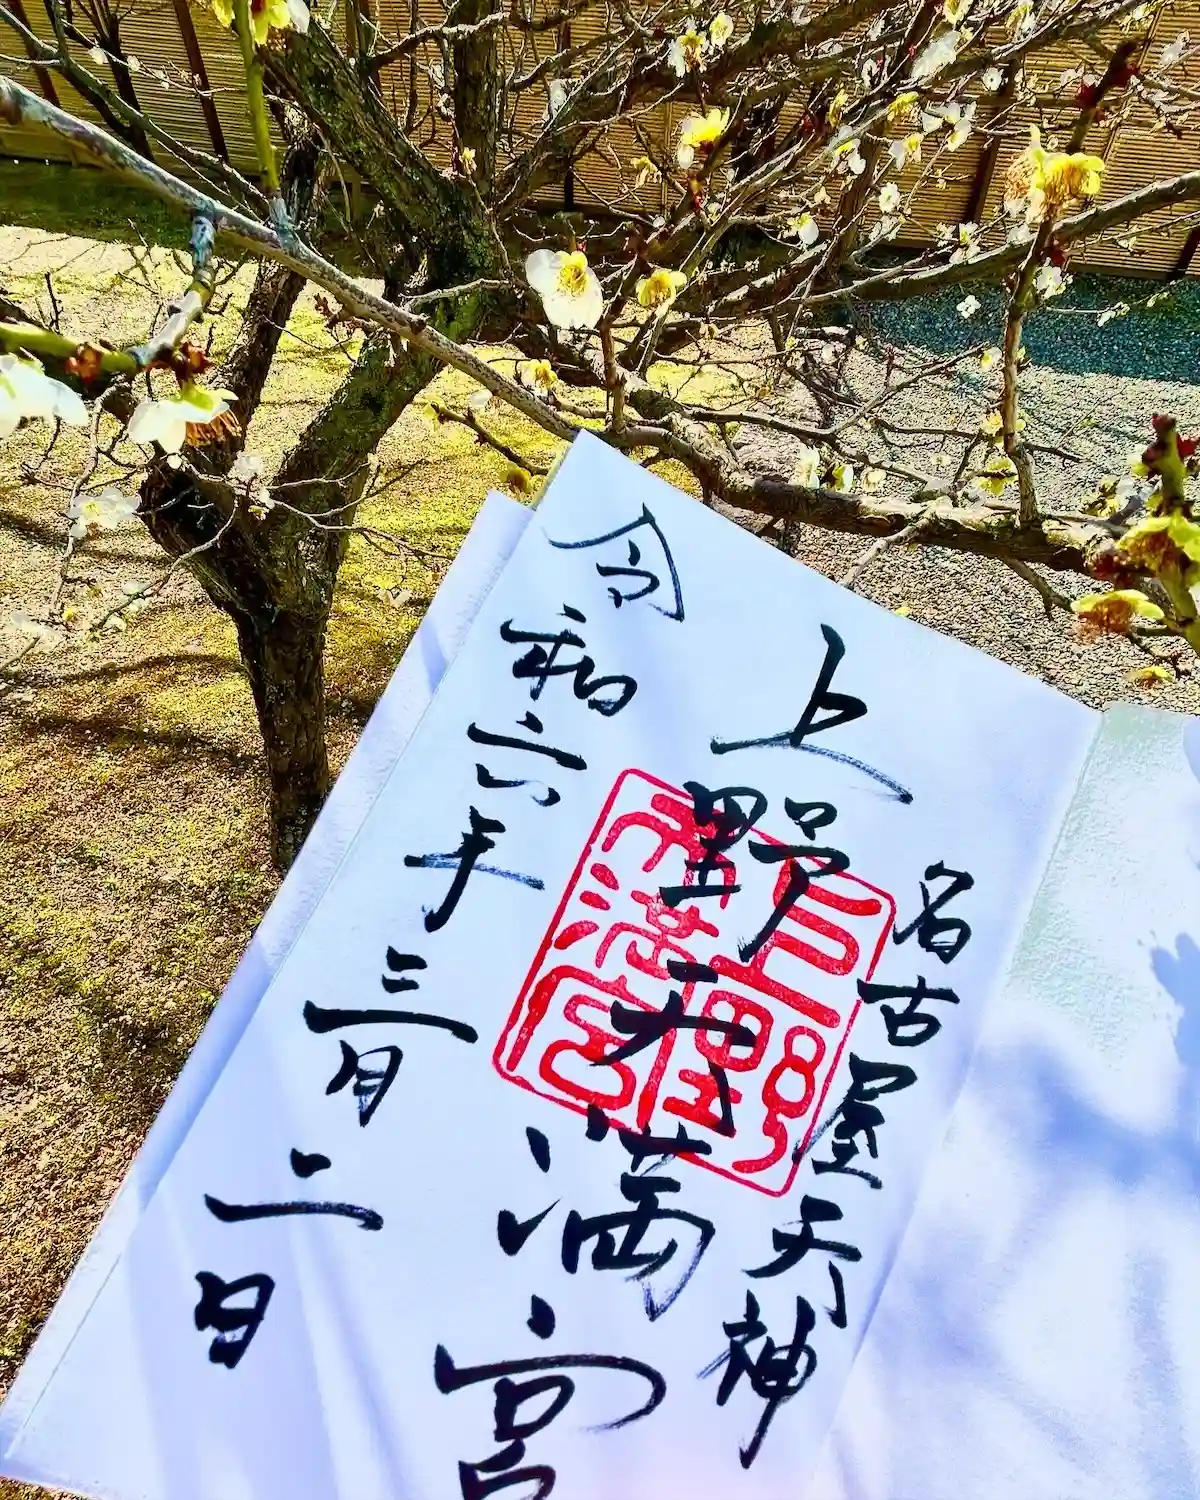 名古屋天神
上野天満宮
上野
天満宮
令和六年三月二日